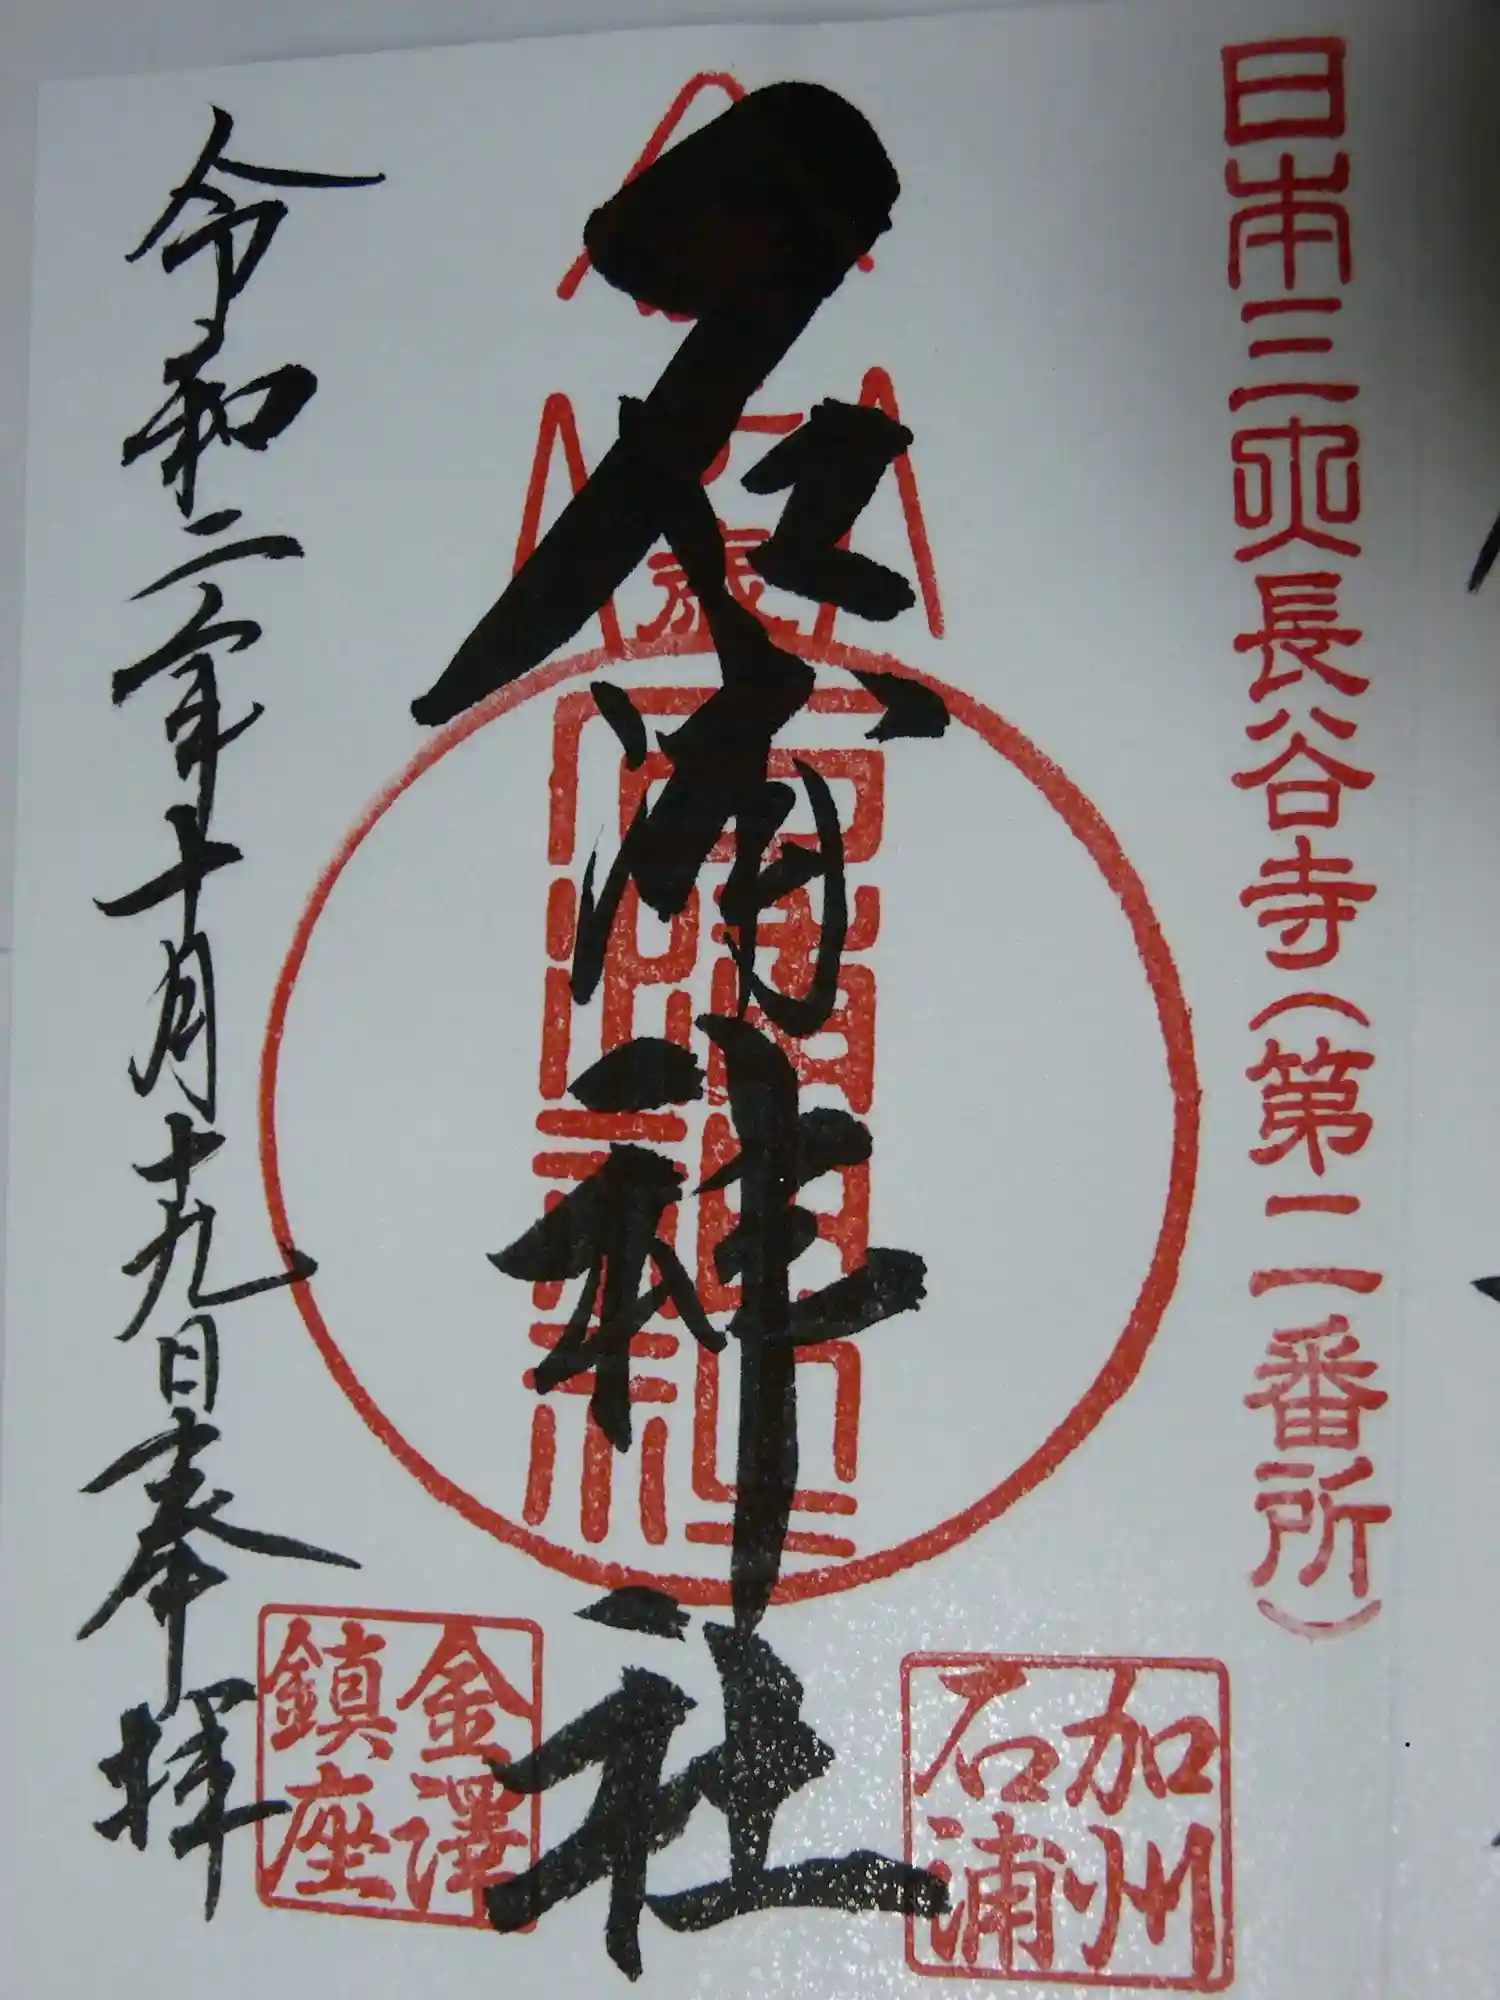 日本三大長谷寺(第二番所)
石浦神社
石浦神社
加州
石浦
令和二年十月十九日奉拝
金澤
鎮座